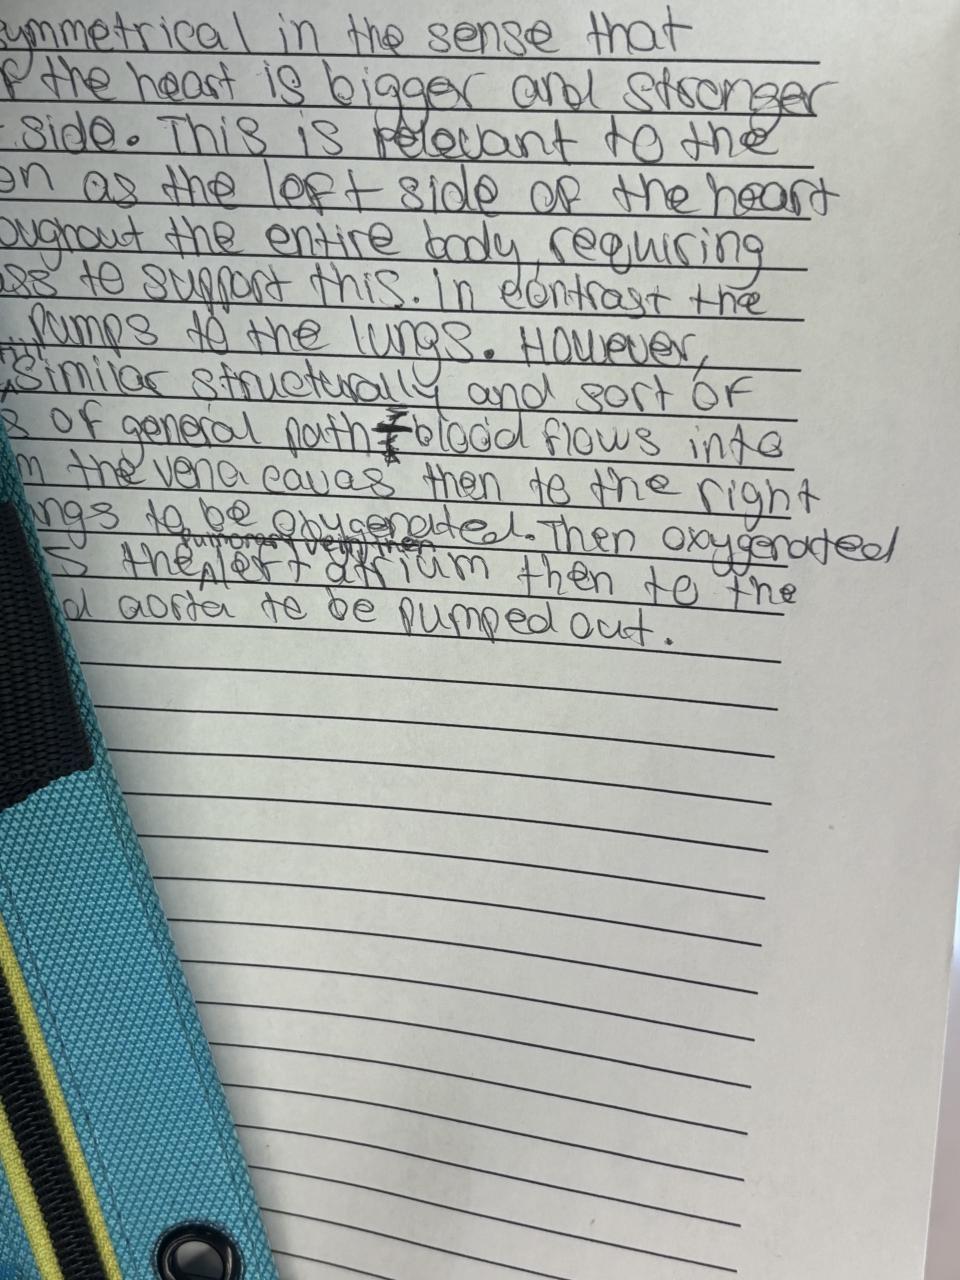 symmetrical in the sense that
f the heart is bigger and stronger
side. This is relevant to the
on as the left side of the heart
oughout the entire body, requiring
ass to support this. In contrast the
pumps to the lungs. However,
similar structurally and sort of
s of general path blood flows into
m the vena cavas then to the right
ngs to be oxygenated. Then oxygenated
vein, then
s the left atrium then to the
d aorta to be pumped out.